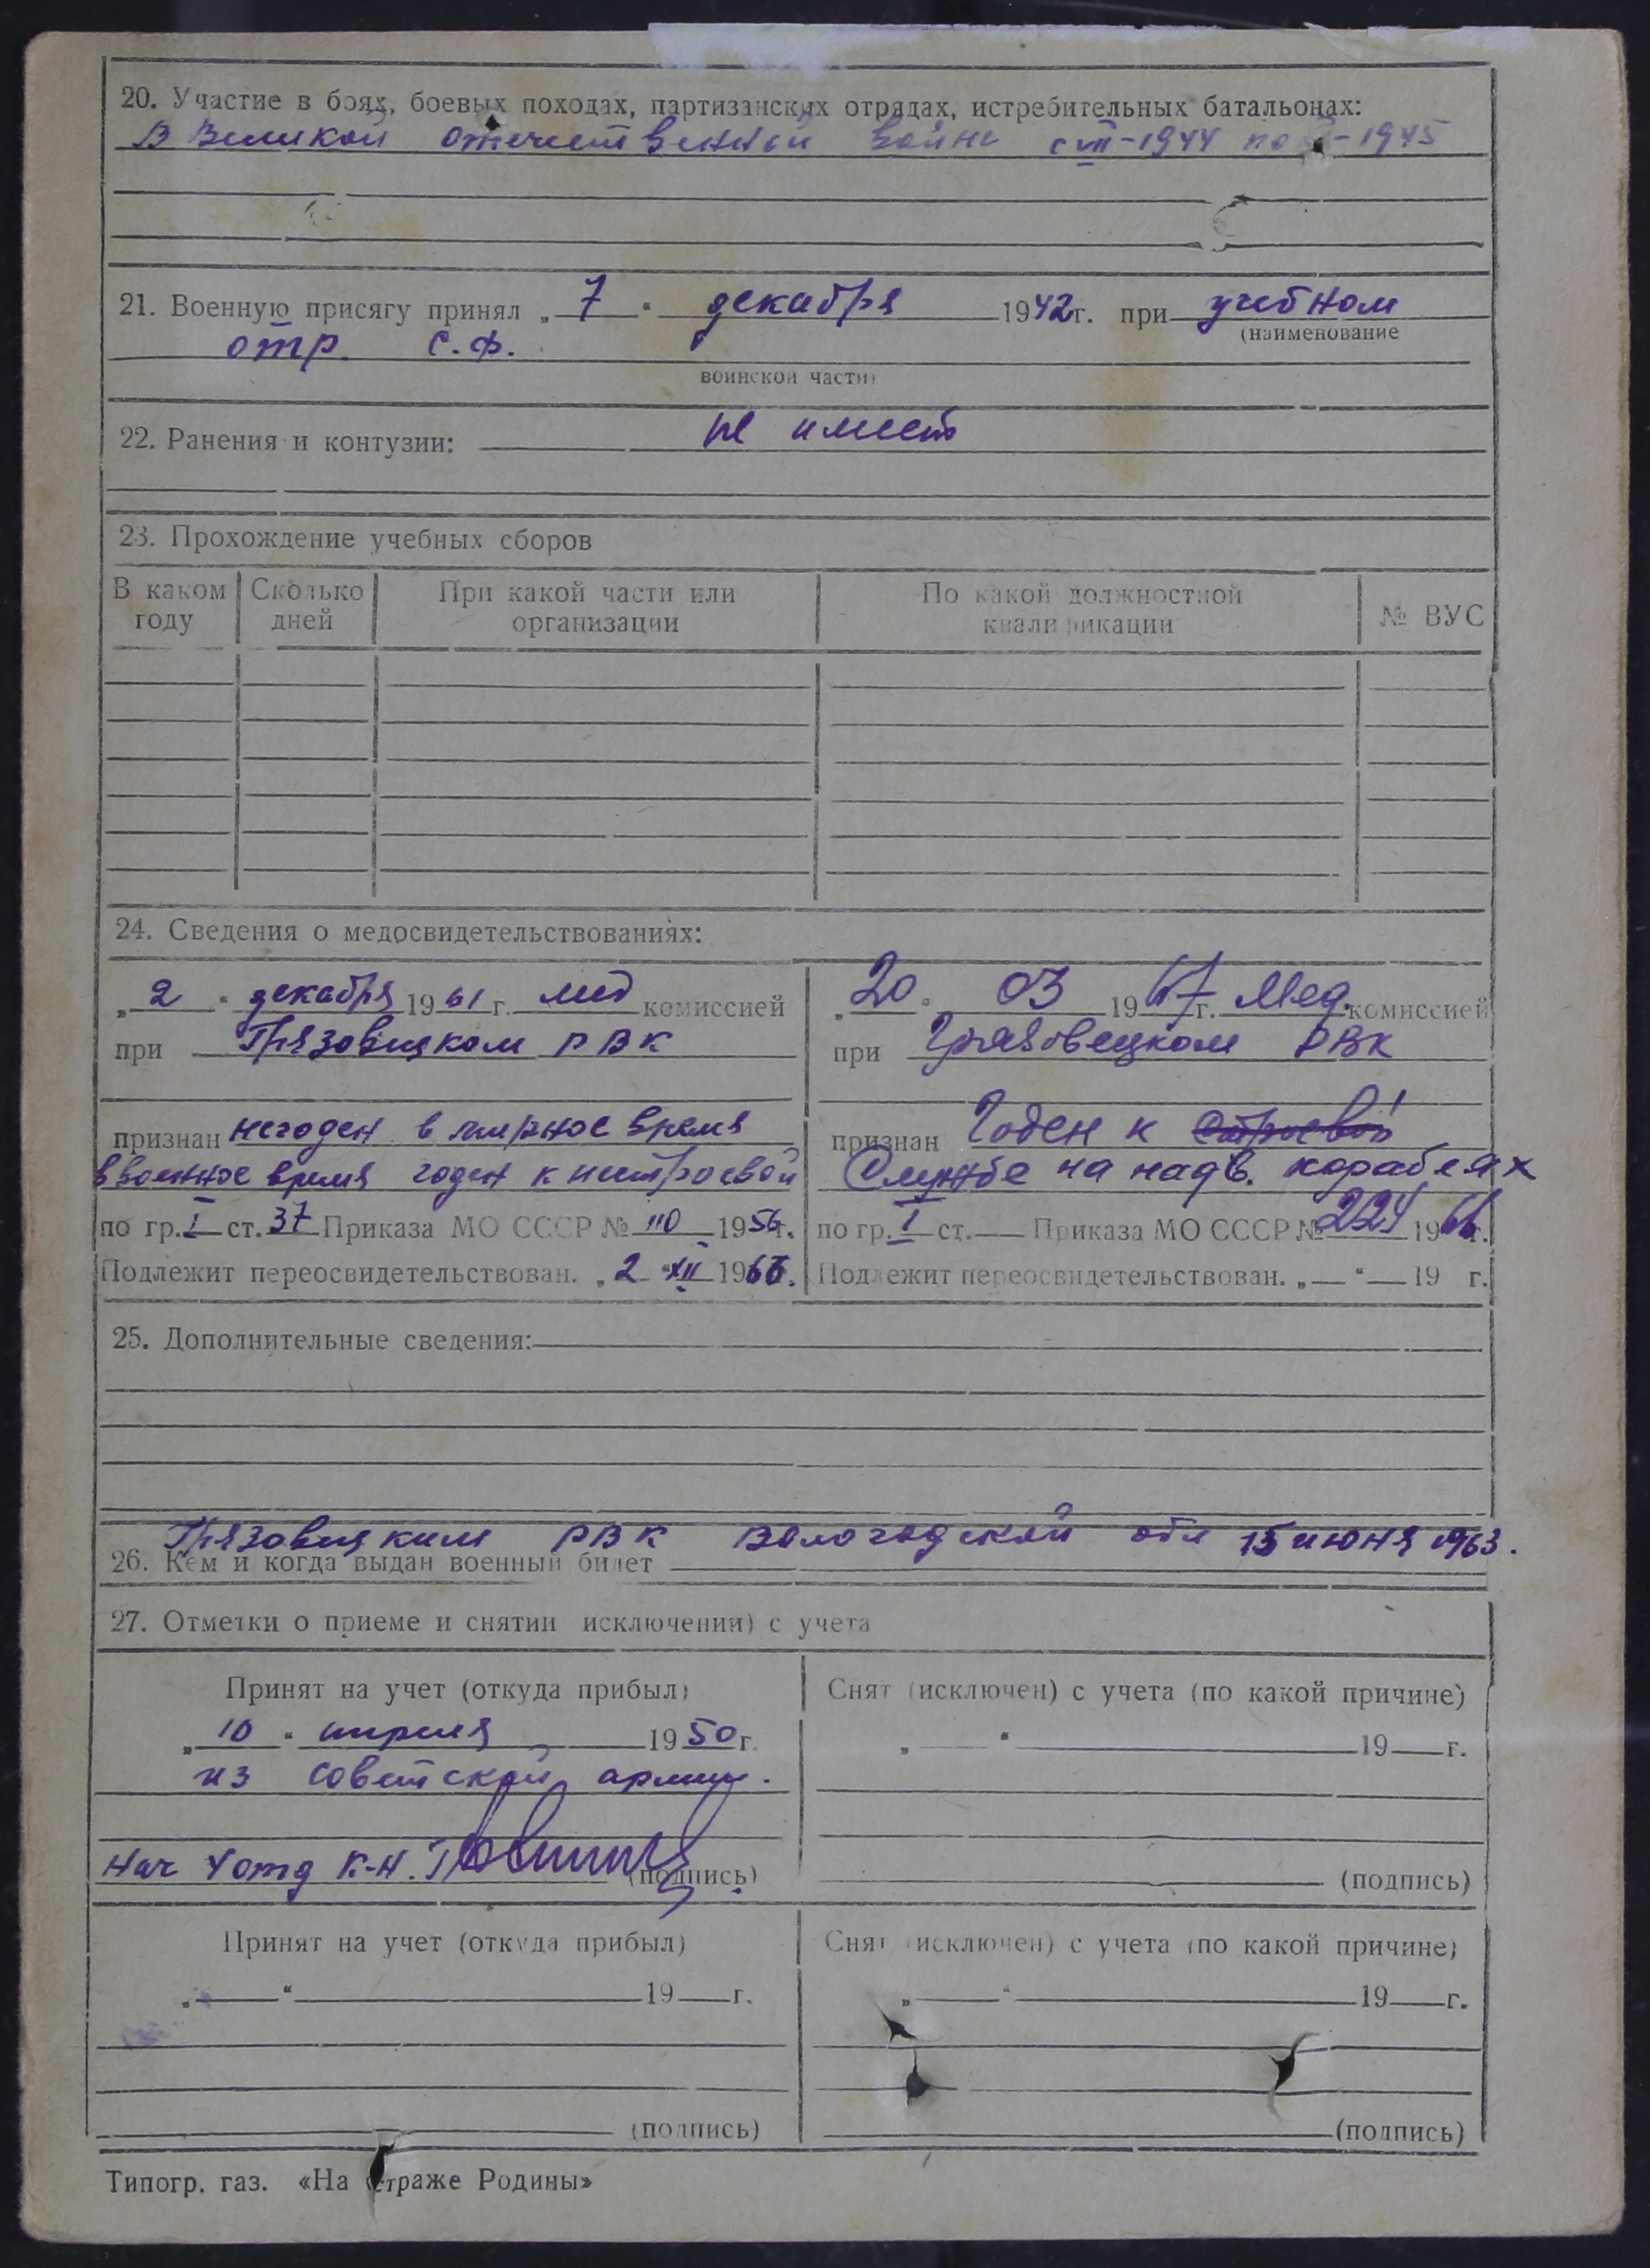 20. Участие в боях, боевых походах, партизанских отрядах, истребительных батальонах:
В Великой отечественной войне с VII-1944 по -1945
21. Военную присягу принял „ 7 " декабря 1942г. при учебном
(наименование
отр. С.Ф.
воинской части)
22. Ранения и контузии: не имеет
23. Прохождение учебных сборов
В каком году Сколько дней При какой части или организации По какой должностной квалификации № ВУС
24. Сведения о медосвидетельствованиях:
„ 2 " декабря 1961 г. мед комиссией
при Грязовецком РВК
признан негоден в мирное время
в военное время годен к нестроевой
по гр. I ст. 37 Приказа МО СССР № 110 1956г.
Подлежит переосвидетельствован. „ 2 " XII 1966.
„ 20 " 03 1967г. Мед. комиссией
при Грязовецком РВК
признан Годен к строевой
Службе на надв. кораблях
по гр. I ст. — Приказа МО СССР № 224 1966г.
Подлежит переосвидетельствован. „ — " — 19 г.
25. Дополнительные сведения:
Грязовецким РВК Вологодской обл 15 июня 1963.
26. Кем и когда выдан военный билет
27. Отметки о приеме и снятии исключении) с учета
Принят на учет (откуда прибыл)
„ 10 " апреля 1950г.
из Советской армии.
Нач 4 отд к-н.
(подпись)
Снят (исключен) с учета (по какой причине)
„ " 19 г.
(подпись)
Принят на учет (откуда прибыл)
„ " 19 г.
(подпись)
Снят (исключен) с учета (по какой причине)
„ " 19 г.
(подпись)
Типогр. газ. «На страже Родины»